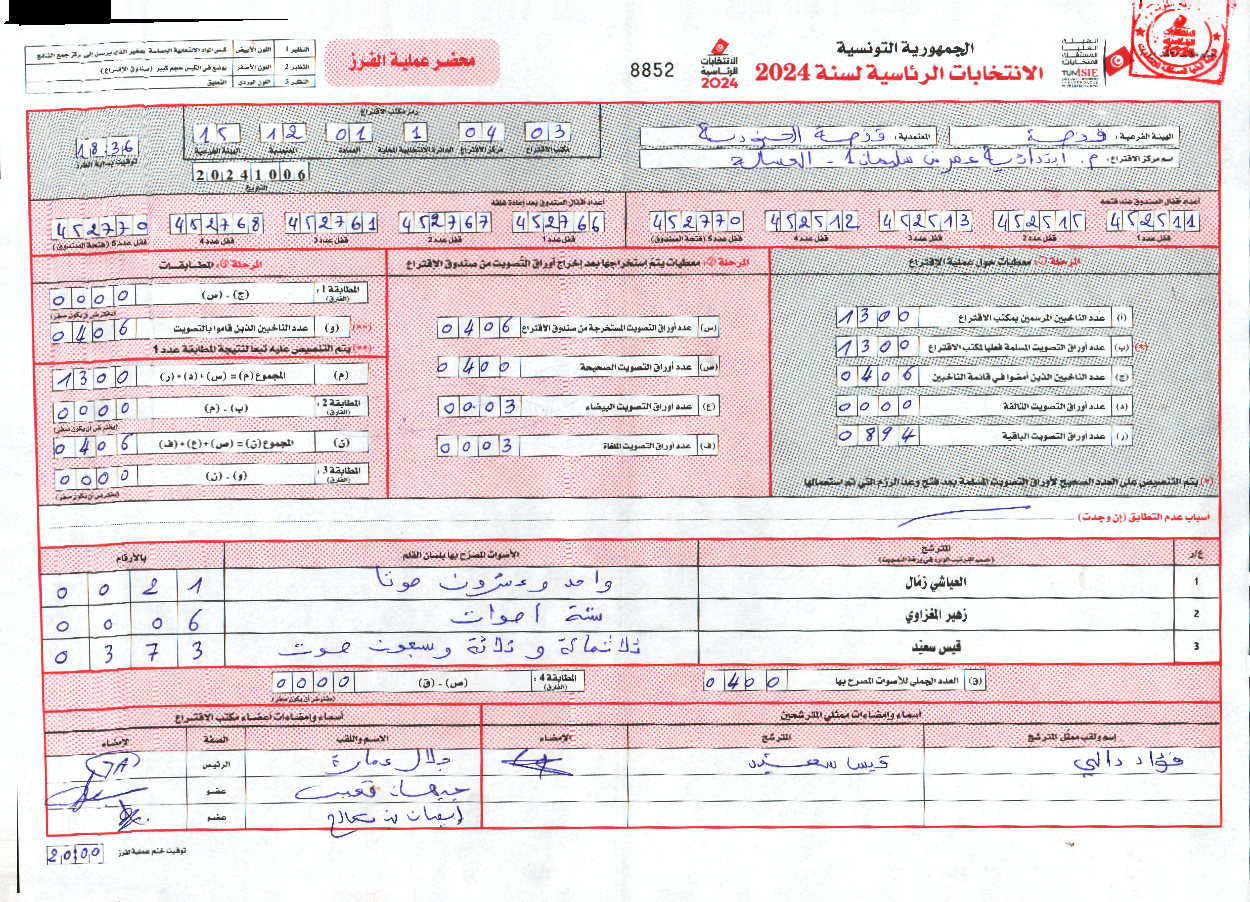 النظير 1 اللون الأبيض كيس المواد الانتخابية الحساسة صغير الذي يرسل إلى مركز جمع النتائج
النظير 2 اللون الأصفر يوضع في الكيس حجم كبير (صندوق الإقتراع)
النظير 3 اللون الوردي التعليق
محضر عملية الفرز
8852
الانتخابات الرئاسية 2024
الجمهورية التونسية
الانتخابات الرئاسية لسنة 2024
الهيئة العليا المستقلة للانتخابات
TUNISIE
رمز مكتب الاقتراع
الهيئة الفرعية : قفصة
المعتمدية :
اسم مركز الاقتراع : م. ابتدائية عمر بن سليمان 1 -
03 مكتب الاقتراع
04 مركز الاقتراع
1 الدائرة الانتخابية المحلية
01 العمادة
12 المعتمدية
15 الهيئة الفرعية
20241006
التاريخ
18:36
توقيت بداية الفرز
أعداد أقفال الصندوق عند فتحه
452511 قفل عدد 1
452515 قفل عدد 2
452513 قفل عدد 3
452512 قفل عدد 4
452770 قفل عدد 5 (فتحة الصندوق)
أعداد أقفال الصندوق بعد إعادة غلقه
452766 قفل عدد 1
452767 قفل عدد 2
452761 قفل عدد 3
452768 قفل عدد 4
452770 قفل عدد 5 (فتحة الصندوق)
المرحلة 1: معطيات حول عملية الاقتراع
(أ) عدد الناخبين المرسمين بمكتب الاقتراع 1300
(*) (ب) عدد أوراق التصويت المسلمة فعليا لمكتب الاقتراع 1300
(ج) عدد الناخبين الذين أمضوا في قائمة الناخبين 0406
(د) عدد أوراق التصويت التالفة 0000
(ر) عدد أوراق التصويت الباقية 0894
(*) يتم التنصيص على العدد الصحيح لأوراق التصويت المسلمة بعد فتح وعد الرزم التي تم استعمالها
المرحلة 2: معطيات يتم استخراجها بعد إخراج أوراق التصويت من صندوق الاقتراع
(س) عدد أوراق التصويت المستخرجة من صندوق الاقتراع 0406
(ص) عدد أوراق التصويت الصحيحة 0400
(ع) عدد أوراق التصويت البيضاء 0003
(ف) عدد أوراق التصويت الملغاة 0003
المرحلة 3: المطابقات
المطابقة 1: (الفارق) (ج) - (س) 0000
(يفترض أن يكون صفر)
(**) (و) عدد الناخبين الذين قاموا بالتصويت 0406
(**) يتم التنصيص عليه تبعا لنتيجة المطابقة عدد 1
(م) المجموع (م) = (س) + (د) + (ر) 1300
المطابقة 2: (الفارق) (ب) - (م) 0000
(يفترض أن يكون صفر)
(ن) المجموع (ن) = (ص) + (ع) + (ف) 0406
المطابقة 3: (الفارق) (و) - (ن) 0000
(يفترض أن يكون صفر)
أسباب عدم التطابق (إن وجدت)
ع/ر المترشح (حسب الترتيب الوارد في ورقة التصويت) الأصوات المصرح بها بلسان القلم بالأرقام
1 العياشي زمّال واحد وعشرون صوتا 0021
2 زهير المغزاوي ستة أصوات 0006
3 قيس سعيّد ثلاثمائة و ثلاثة وسبعون صوت 0373
(ق) العدد الجملي للأصوات المصرح بها 0400
المطابقة 4: (الفارق) (ص) - (ق) 0000
(يفترض أن يكون صفر)
أسماء وإمضاءات ممثلي المترشحين
أسماء وإمضاءات أعضاء مكتب الاقتراع
إسم ولقب ممثل المترشح المترشح الإمضاء
الاسم واللقب الصفة الإمضاء
فؤاد دالي قيس سعيد
جلال عمارة الرئيس
جيهان عضو
إيمان عضو
20:00 توقيت ختم عملية الفرز